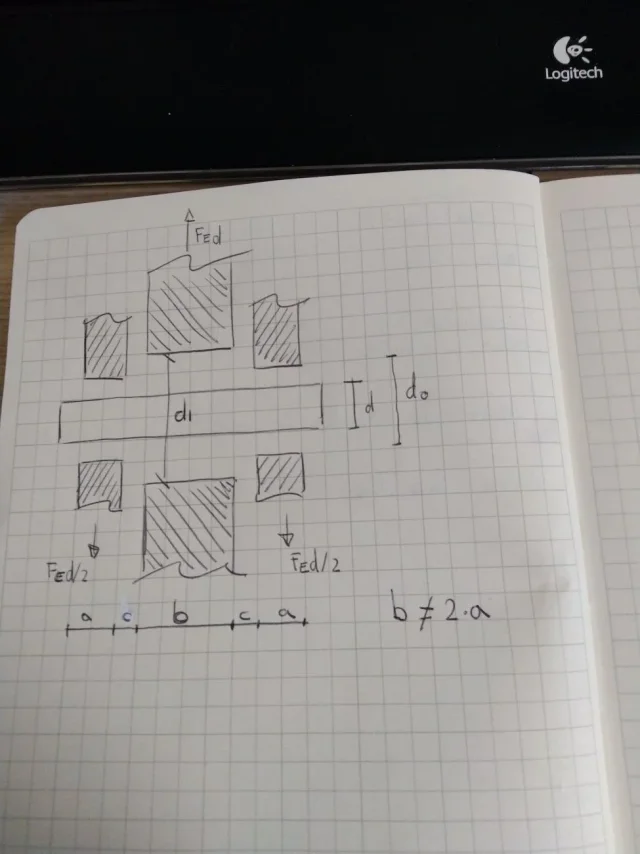 Logitech
FEd
d1
d
d0
FEd/2
FEd/2
a c b c a
b ≠ 2·a